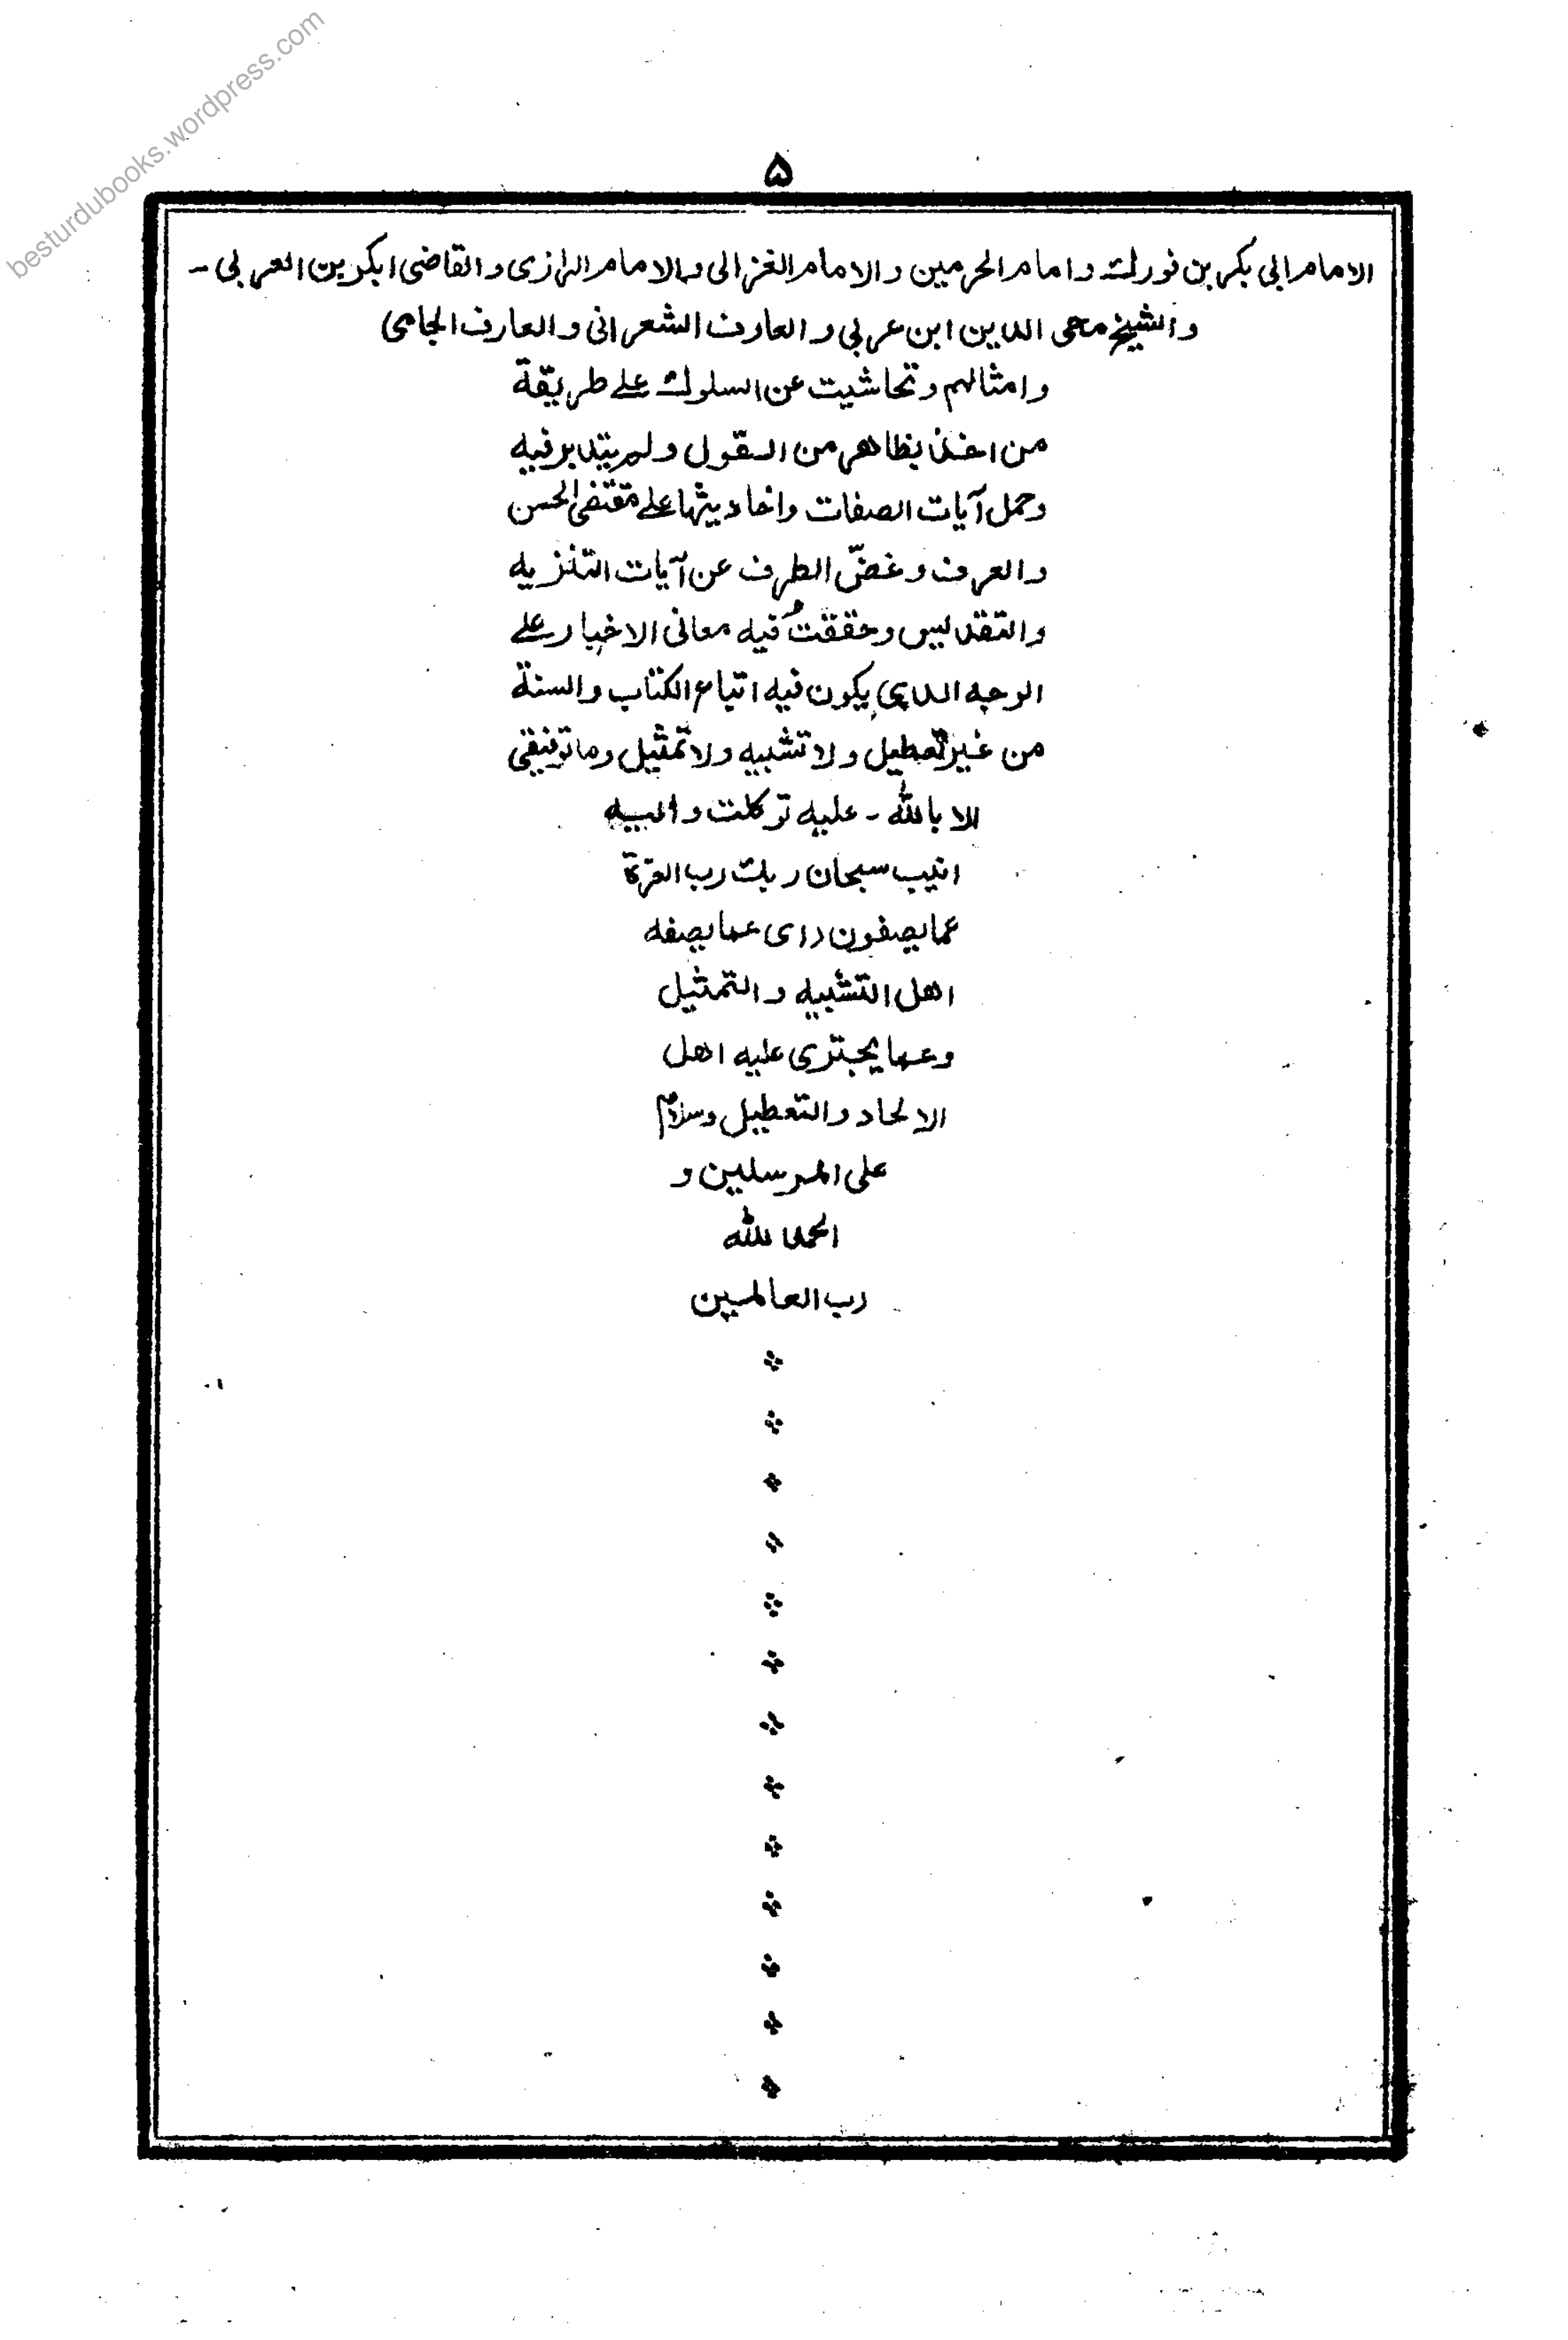 besturdubooks.wordpress.com
۵
الامام ابی بکر بن فورک وامام الحرمین والامام الغزالی والامام الرازی والقاضی ابکر بن العربی -
والشیخ محی الدین ابن عربی والعارف الشعرانی والعارف الجامی
وامثالهم وتحاشیت عن السلوک علی طریقة
من اخذ بظاهر من القول ولم یتدبر فیه
وحمل آیات الصفات واحادیثها علی مقتضی الحسن
والعرف وغضّ الطرف عن آیات التنزیه
والتقدیس وحققتُ فیه معانی الاخبار علی
الوجه الذی یکون فیه اتباع الکتاب والسنة
من غیر تعطیل ولا تشبیه ولا تمثیل وما توفیقی
الا بالله - علیه توکلت والیه
انیب سبحان ربک رب العزة
عما یصفون رای عما یصفه
اهل التشبیه والتمثیل
وعما یجتری علیه اهل
الالحاد والتعطیل وسلام
علی المرسلین و
الحمد لله
رب العالمین